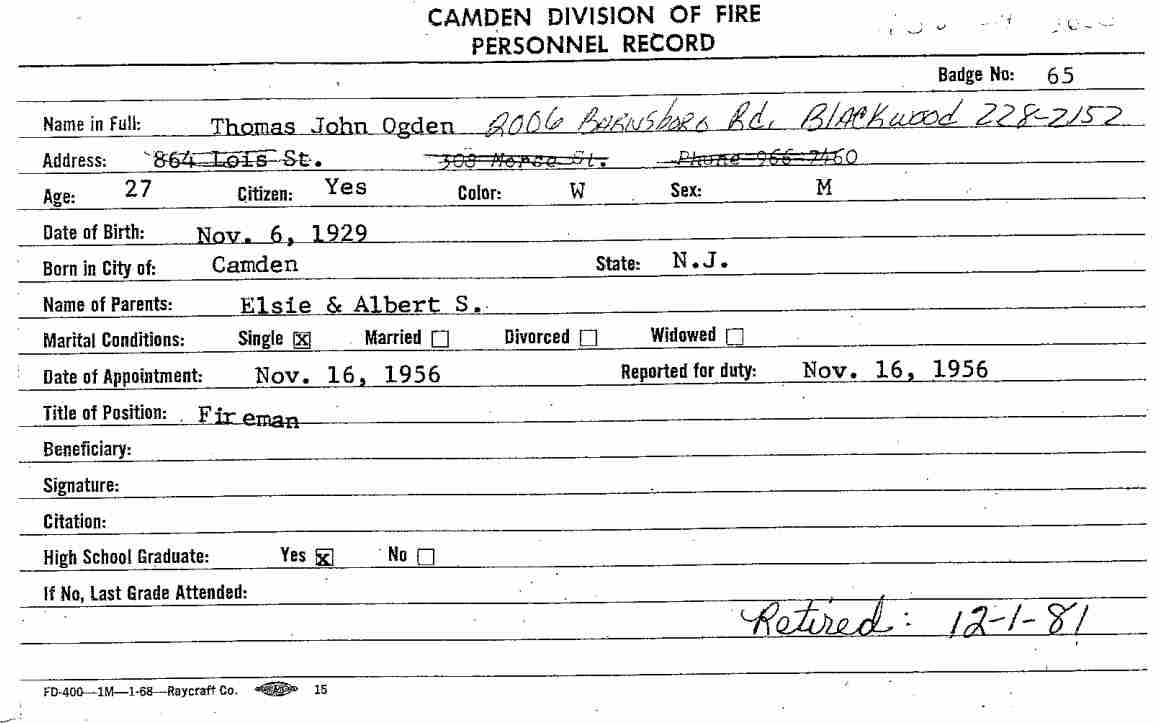 CAMDEN DIVISION OF FIRE
PERSONNEL RECORD
Badge No: 65
Name in Full: Thomas John Ogden 2006 Barnsboro Rd. Blackwood 228-2152
Address: 864 Lois St. 308 Morse St. Phone 966-7460
Age: 27 Citizen: Yes Color: W Sex: M
Date of Birth: Nov. 6, 1929
Born in City of: Camden State: N.J.
Name of Parents: Elsie & Albert S.
Marital Conditions: Single ☒ Married ☐ Divorced ☐ Widowed ☐
Date of Appointment: Nov. 16, 1956 Reported for duty: Nov. 16, 1956
Title of Position: Fireman
Beneficiary:
Signature:
Citation:
High School Graduate: Yes ☒ No ☐
If No, Last Grade Attended:
Retired: 12-1-81
FD-400—1M—1-68—Raycraft Co. 15